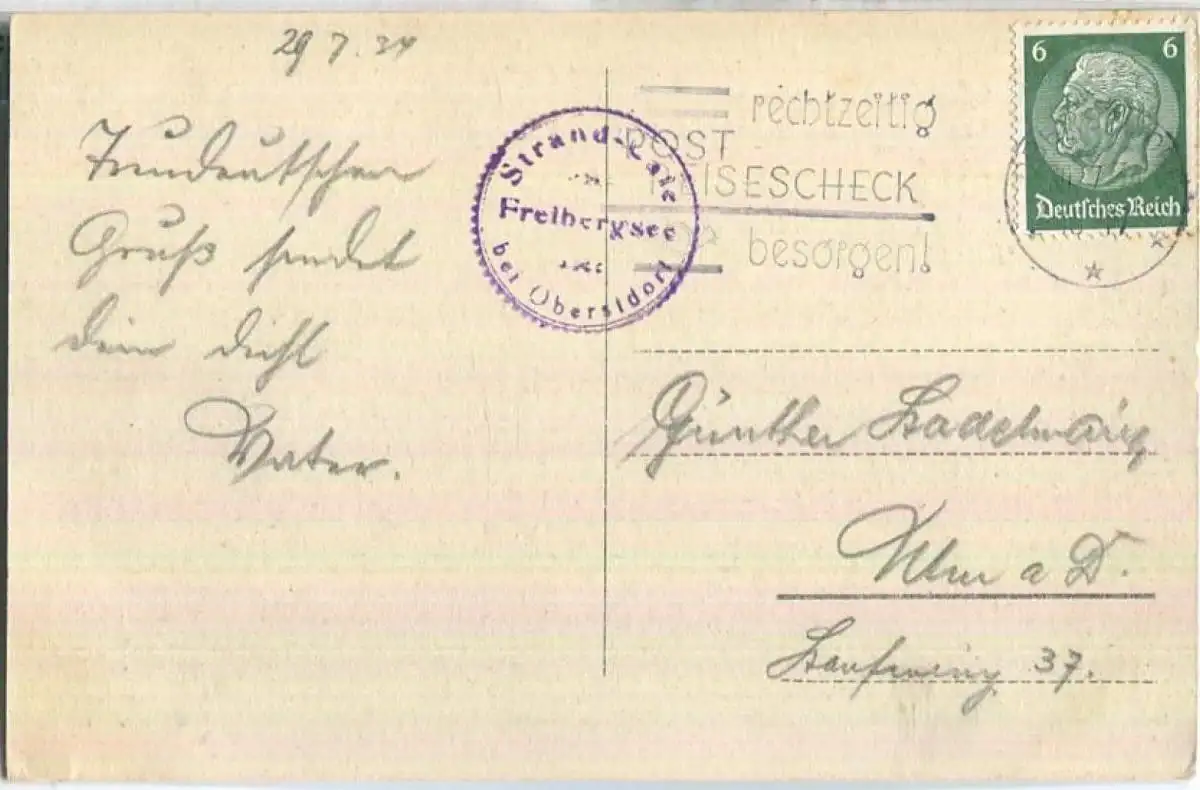 29 7. 34
Treudeutschen
Gruß sendet
Dein
Vater.
Strand-Café
Freibergsee
bei Oberstdorf
rechtzeitig
POST
REISESCHECK
besorgen!
6 6
Deutsches Reich
Günther
Ulm a D.
37.